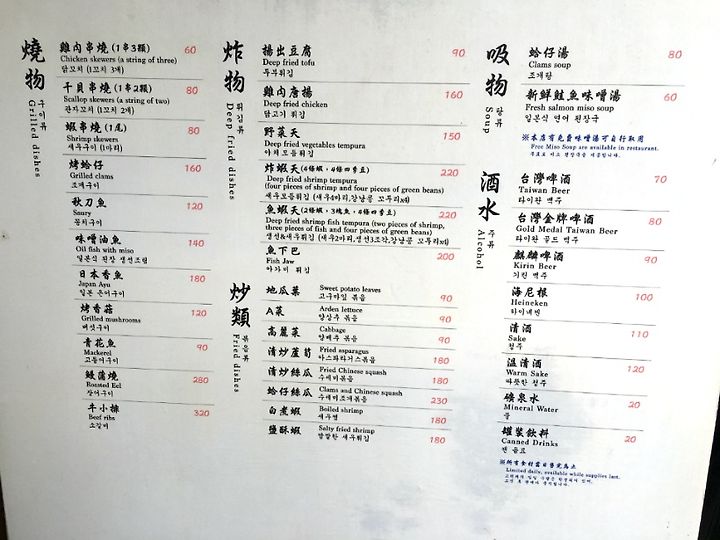 燒物 구이류 Grilled dishes
雞肉串燒 (1串3顆) 60
Chicken skewers (a string of three)
닭꼬치 (1꼬치 3개)
干貝串燒 (1串2顆) 80
Scallop skewers (a string of two)
관자꼬치 (1꼬치 2개)
蝦串燒 (1尾) 80
Shrimp skewers
새우구이 (1마리)
烤蛤仔 160
Grilled clams
조개구이
秋刀魚 120
Saury
꽁치구이
味噌油魚 140
Oil fish with miso
일본식 된장 생선조림
日本香魚 180
Japan Ayu
일본 은어구이
烤香菇 120
Grilled mushrooms
버섯구이
青花魚 90
Mackerel
고등어구이
鰻蒲燒 280
Roasted Eel
장어구이
牛小排 320
Beef ribs
소갈비
炸物 튀김류 Deep fried dishes
揚出豆腐 90
Deep fried tofu
두부튀김
雞肉唐揚 160
Deep fried chicken
닭고기 튀김
野菜天 150
Deep fried vegetables tempura
야채모듬튀김
炸蝦天 (4條蝦，4條四季豆) 220
Deep fried shrimp tempura
(four pieces of shrimp and four pieces of green beans)
새우모듬튀김 (새우4마리,강낭콩 꼬투리x4)
魚蝦天 (2條蝦，3塊魚，4條四季豆) 220
Deep fried shrimp fish tempura (two pieces of shrimp,
three pieces of fish and four pieces of green beans)
생선&새우튀김 (새우2마리,생선3조각,강낭콩 꼬투리x4)
魚下巴 200
Fish Jaw
아가미 튀김
炒類 볶음류 Fried dishes
地瓜葉 Sweet potato leaves
고구마잎 볶음 90
A菜 Arden lettuce
양상추 볶음 90
高麗菜 Cabbage
양배추 볶음 90
清炒蘆筍 Fried asparagus
아스파라거스볶음 180
清炒絲瓜 Fried Chinese squash
수세미볶음 180
蛤仔絲瓜 Clams and Chinese squash
수세미조개볶음 230
白煮蝦 Boiled shrimp
새우찜 180
鹽酥蝦 Salty fried shrimp
짭짤한 새우튀김 180
吸物 탕류 Soup
蛤仔湯 80
Clams soup
조개탕
新鮮鮭魚味噌湯 60
Fresh salmon miso soup
일본식 연어 된장국
※本店有免費味噌湯可自行取用
Free Miso Soup are available in restaurant.
酒水 주류 Alcohol
台灣啤酒 70
Taiwan Beer
타이완 맥주
台灣金牌啤酒 80
Gold Medal Taiwan Beer
타이완 골드 맥주
麒麟啤酒 90
Kirin Beer
기린 맥주
海尼根 100
Heineken
하이네켄
清酒 110
Sake
청주
溫清酒 120
Warm Sake
따뜻한 청주
礦泉水 20
Mineral Water
물
罐裝飲料 20
Canned Drinks
캔 음료
※所有食材當日售完為止
Limited daily, available while supplies last.